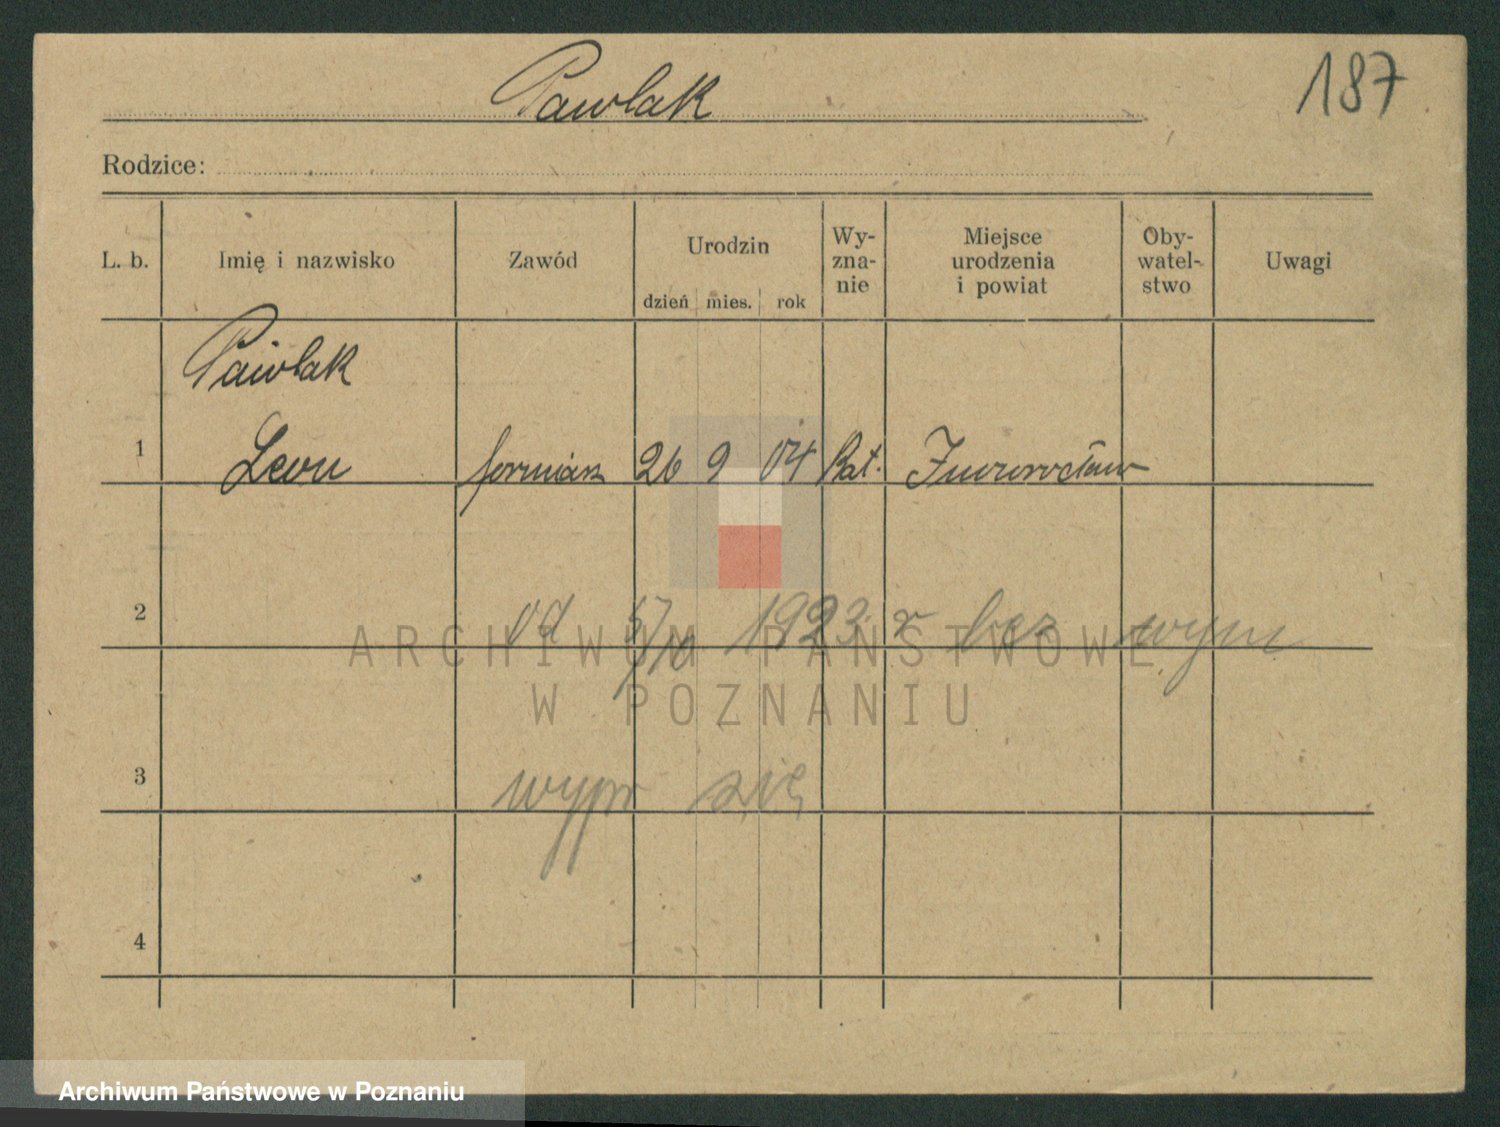 Pawlak
187
Rodzice:
L. b. Imię i nazwisko Zawód Urodzin dzień mies. rok Wy-zna-nie Miejsce urodzenia i powiat Oby-watel-stwo Uwagi
Pawlak
1 Leon formiarz 26 9 04 Kat. Inowrocław
2 od 5/10 1923 r bez wym
ARCHIWUM PAŃSTWOWE
W POZNANIU
3 wypr się
4
Archiwum Państwowe w Poznaniu